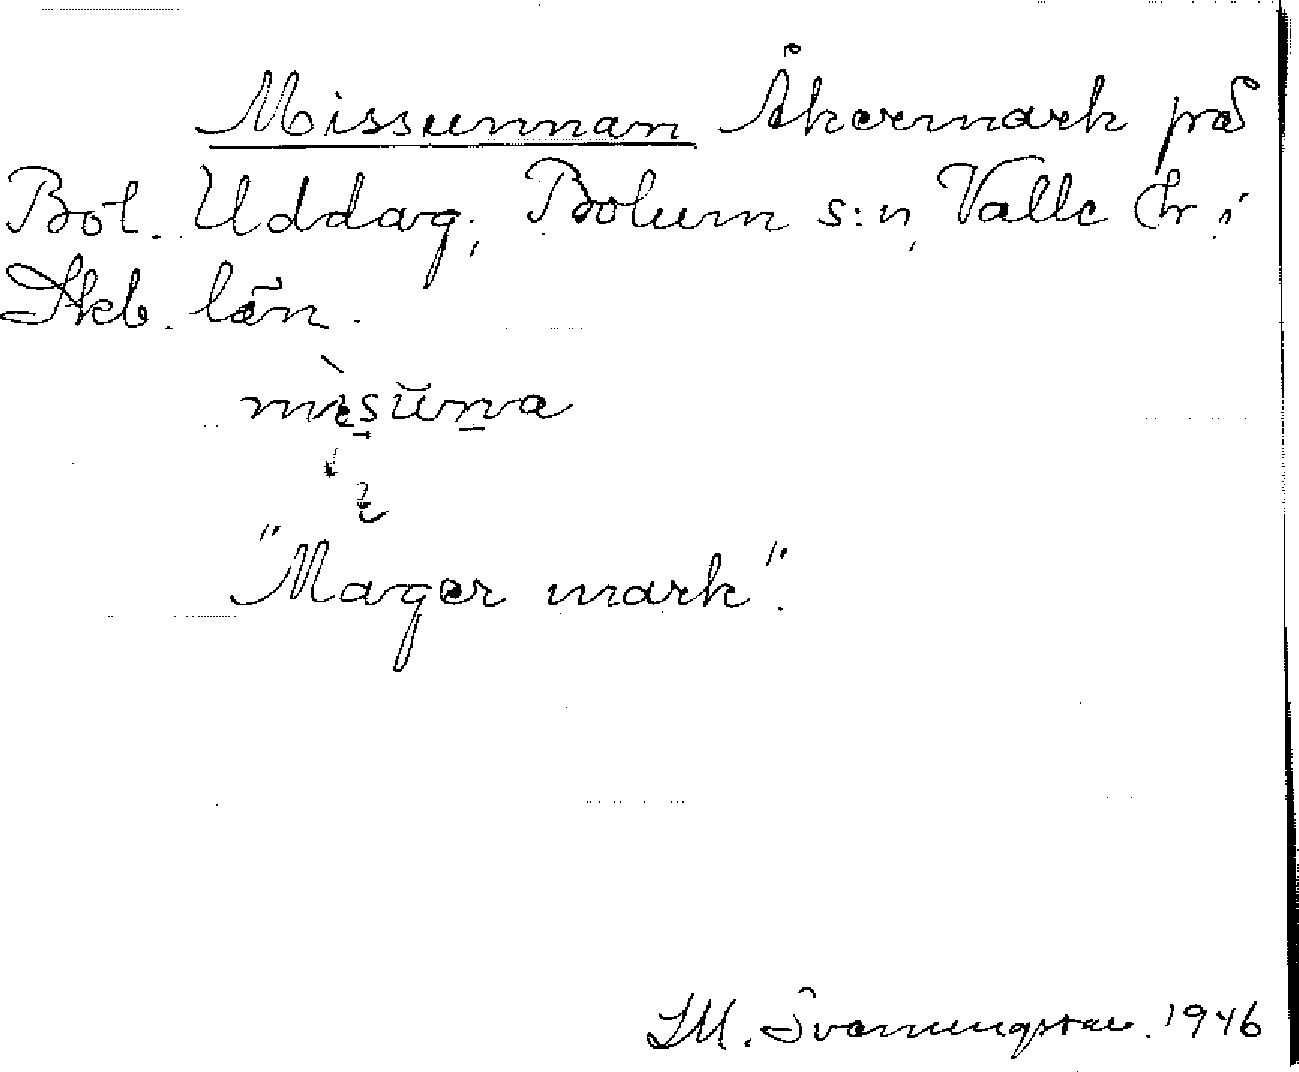 Missunnan Åkermark på
Bot. Uddag, Bolum s:n, Valle hr i
Skb. län.
mìsŭna
"Mager mark".
1946